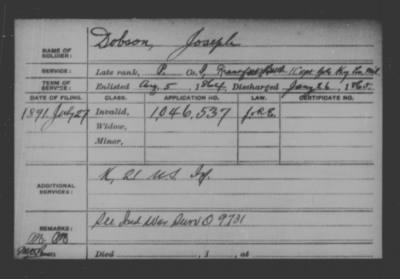 Dobson, Joseph
NAME OF SOLDIER:
SERVICE: Late rank, P. Co. Ky.
TERM OF SERVICE: Enlisted Aug. 5, 1864, Discharged Jany 26, 1865.
DATE OF FILING. CLASS. APPLICATION NO. LAW. CERTIFICATE NO.
1891. July 27 Invalid, 1046,537
Widow,
Minor,
ADDITIONAL SERVICES: K, 21 US Inf.
REMARKS: See Ind War Surv O 9731
Died , 1 , at